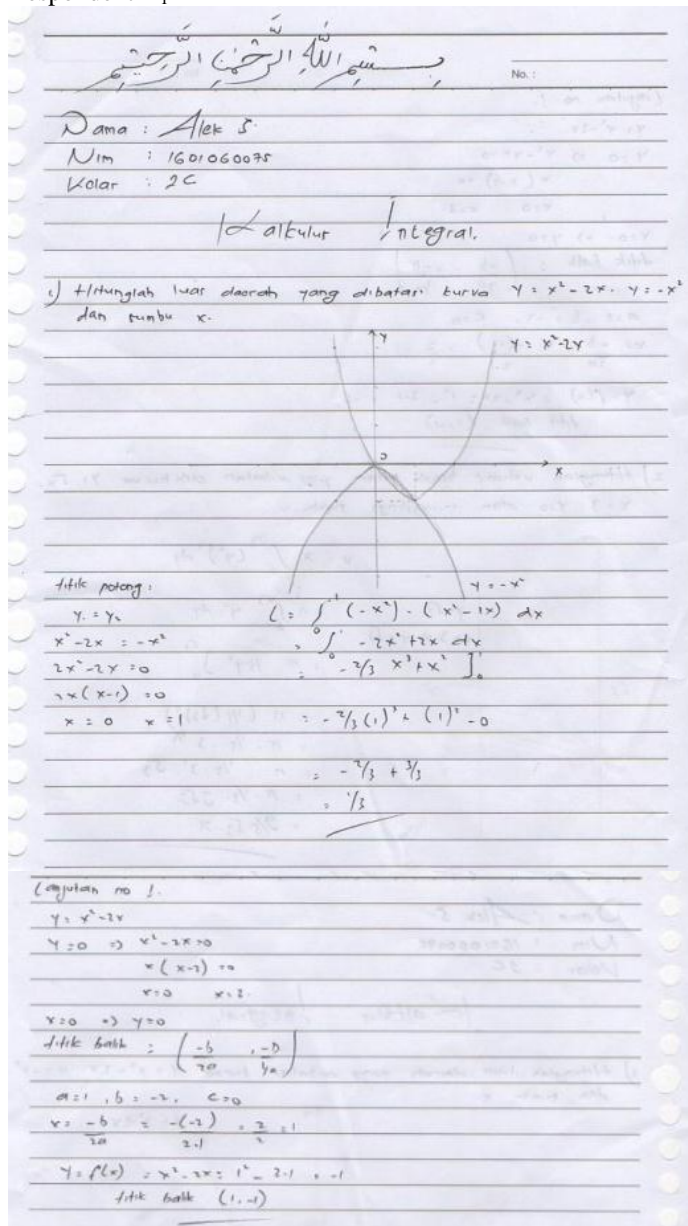 بسم الله الرحمن الرحيم
No. :
Nama : Alek S.
Nim : 1601060075
Kelas : 2C
Kalkulus Integral.
1.) Hitunglah luas daerah yang dibatasi kurva y = x² - 2x, y = -x²
dan sumbu x.
y
y = x² - 2x
0
x
y = -x²
titik potong :
y₁ = y₂
x² - 2x = -x²
2x² - 2x = 0
2x (x-1) = 0
x = 0 x = 1
L = ∫₀¹ (-x²) - (x² - 2x) dx
= ∫₀¹ -2x² + 2x dx
= -2/3 x³ + x² ]₀¹
= -2/3 (1)³ + (1)² - 0
= -2/3 + 3/3
= 1/3
Lanjutan no 1.
y = x² - 2x
y = 0 => x² - 2x = 0
x (x-2) = 0
x = 0 x = 2.
x = 0 => y = 0
titik balik : (-b/2a , -D/4a)
a = 1 , b = -2, c = 0
x = -b/2a = -(-2)/2.1 = 2/2 = 1
y = f(x) = x² - 2x = 1² - 2.1 = -1
titik balik (1, -1)